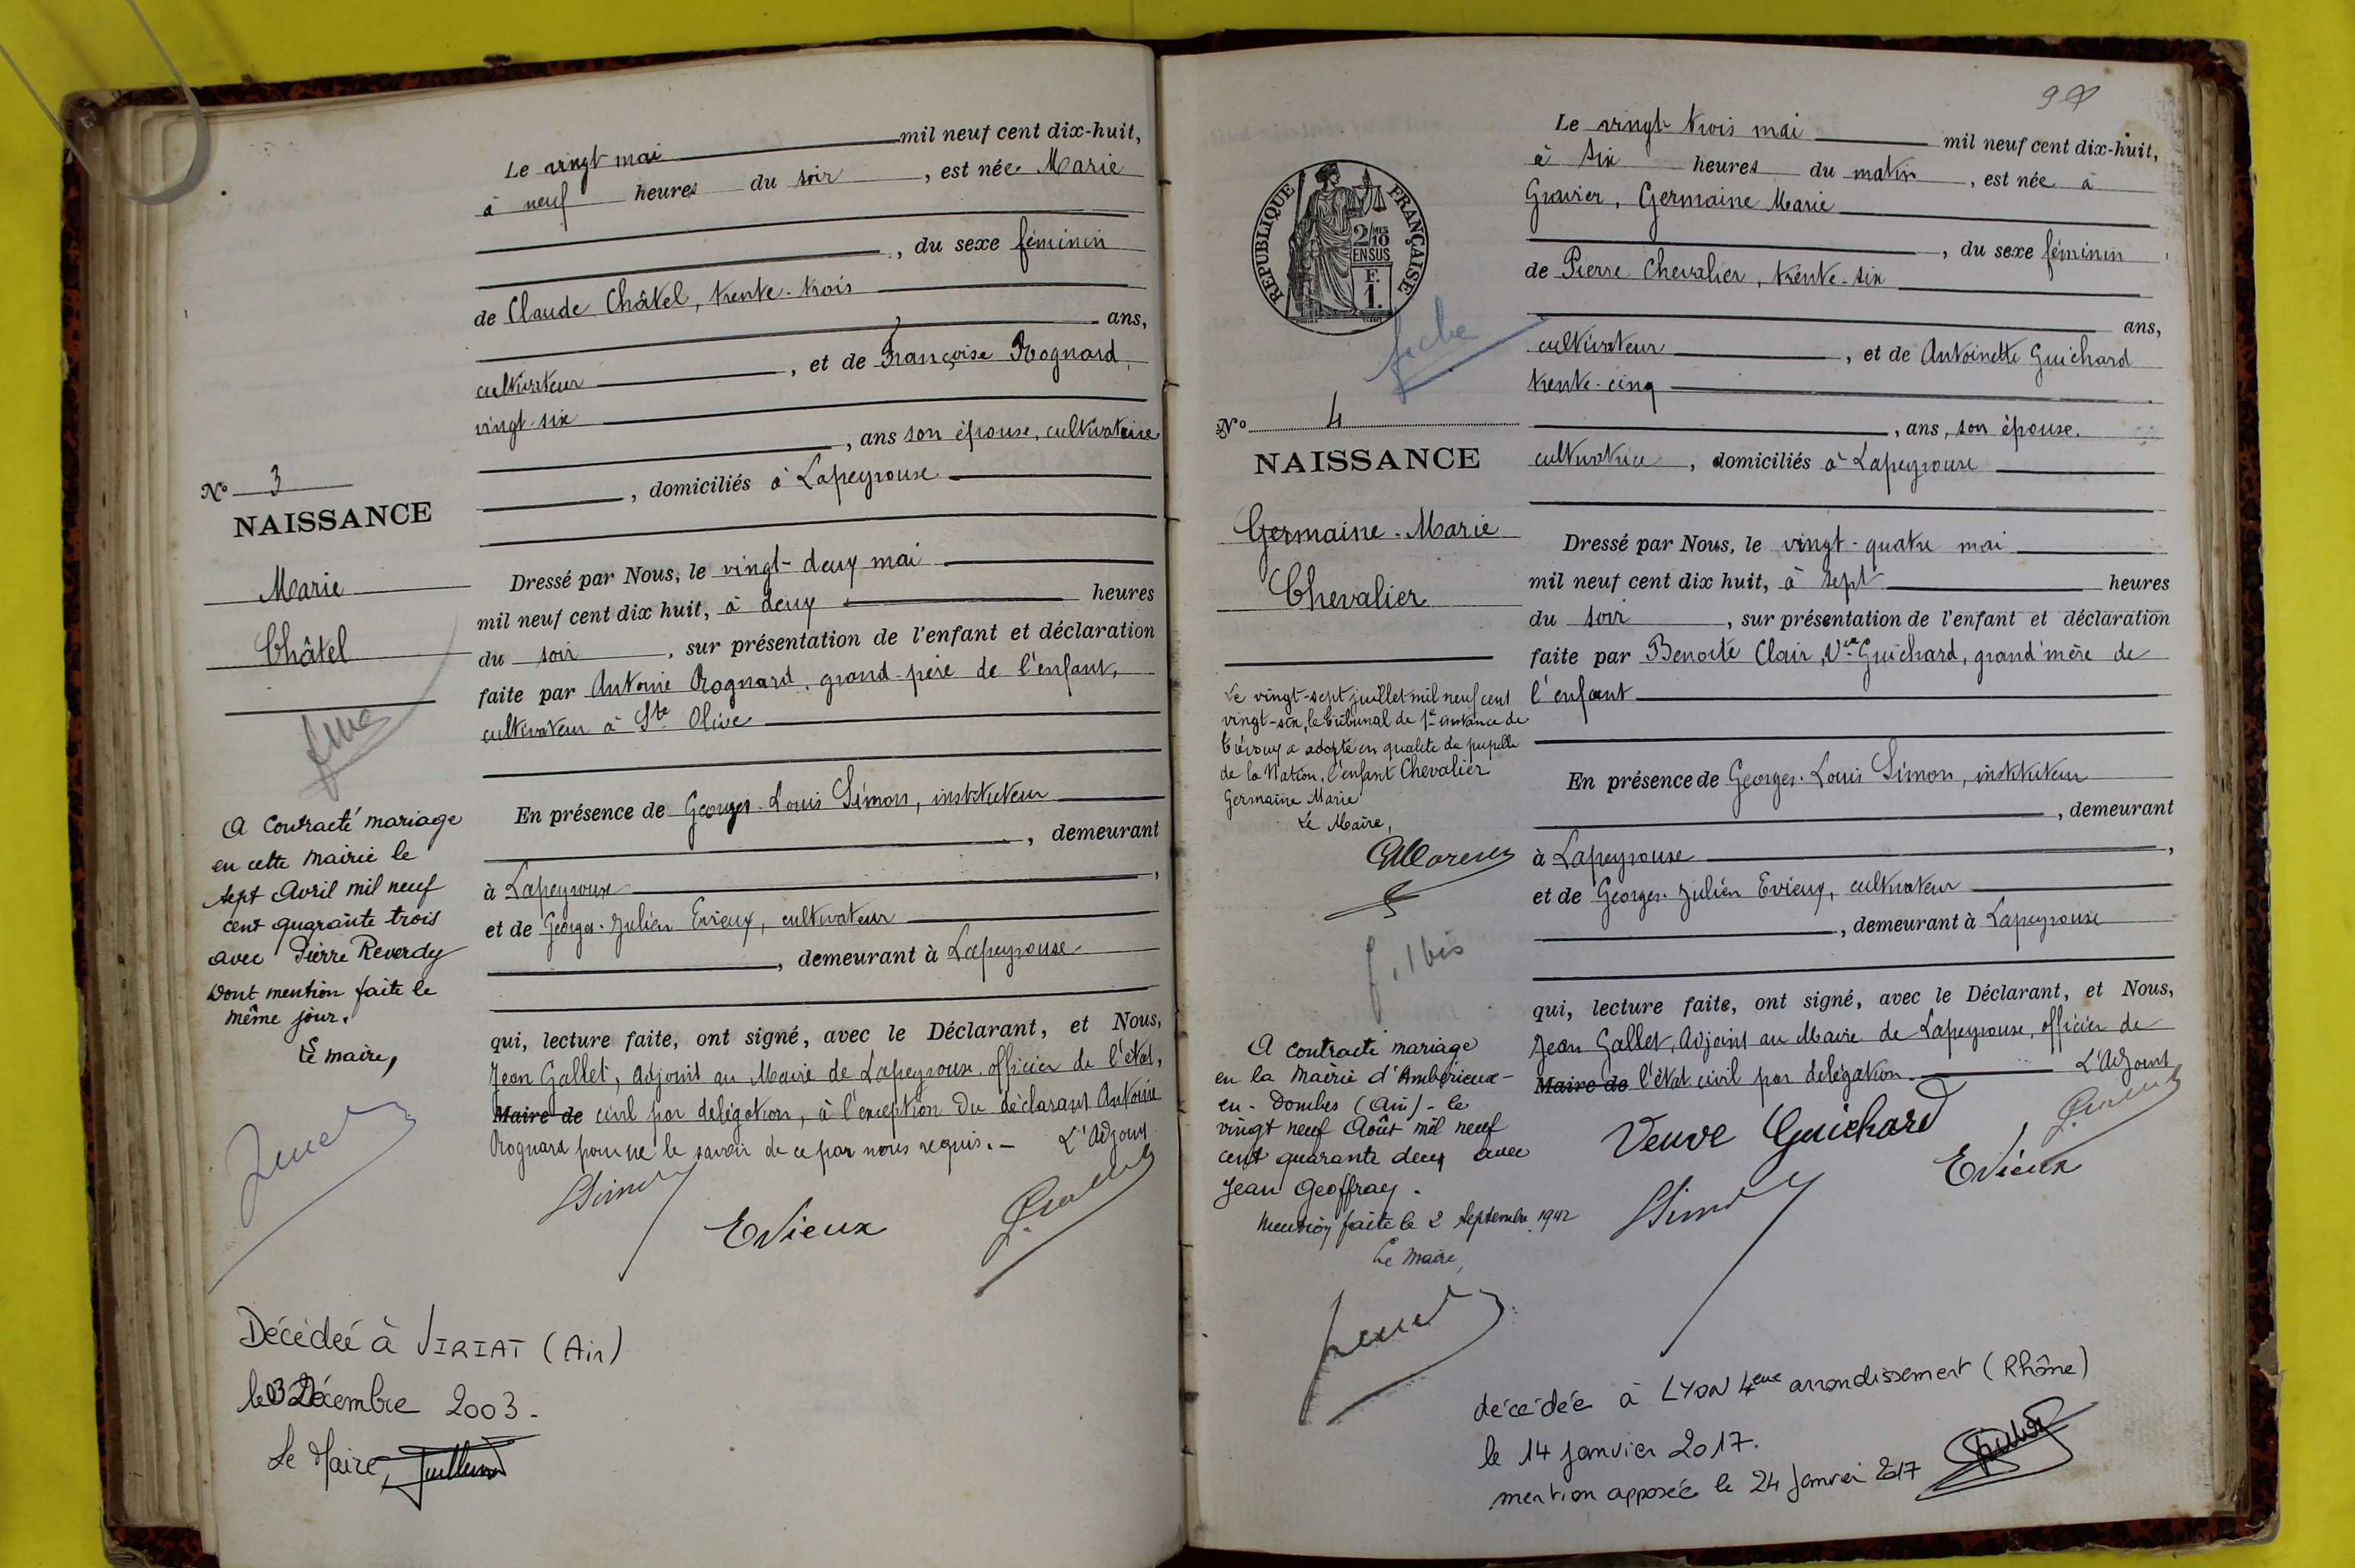 Le vingt mai mil neuf cent dix-huit,
à neuf heures du soir, est née Marie
, du sexe féminin
de Claude Châtel, trente-trois
ans,
cultivateur, et de Françoise Rognard,
vingt-six
, ans son épouse, cultivatrice
, domiciliés à Lapeyrouse
No 3
NAISSANCE
Marie
Châtel
Dressé par Nous, le vingt-deux mai
mil neuf cent dix huit, à deux heures
du soir, sur présentation de l'enfant et déclaration
faite par Antoine Rognard, grand-père de l'enfant,
cultivateur à Ste Olive
En présence de Georges-Louis Simon, instituteur
, demeurant
à Lapeyrouse,
et de Georges-Julien Evieux, cultivateur
, demeurant à Lapeyrouse
qui, lecture faite, ont signé, avec le Déclarant, et Nous,
Jean Gallet, Adjoint au Maire de Lapeyrouse, officier de l'état,
Maire de civil par délégation, à l'exception du déclarant Antoine
Rognard pour ne le savoir de ce par nous requis. — L'Adjoint
Simon
Evieux
A contracté mariage
en cette mairie le
sept Avril mil neuf
cent quarante trois
avec Pierre Reverdy
Dont mention faite le
même jour.
Le maire,
Décédée à VIRIAT (Ain)
le 03 Décembre 2003.
Le Maire,
98
Le vingt trois mai mil neuf cent dix-huit,
à six heures du matin, est née à
Gravier, Germaine Marie
, du sexe féminin
de Pierre Chevalier, trente-six
ans,
cultivateur, et de Antoinette Guichard
trente-cinq
, ans, son épouse.
cultivatrice, domiciliés à Lapeyrouse
RÉPUBLIQUE FRANÇAISE
2/10
EN SUS
F.
1.
fiche
No 4
NAISSANCE
Germaine-Marie
Chevalier
Dressé par Nous, le vingt-quatre mai
mil neuf cent dix huit, à sept heures
du soir, sur présentation de l'enfant et déclaration
faite par Benoite Clair, Vve Guichard, grand'mère de
l'enfant
En présence de Georges-Louis Simon, instituteur
, demeurant
à Lapeyrouse,
et de Georges-Julien Evieux, cultivateur
, demeurant à Lapeyrouse
qui, lecture faite, ont signé, avec le Déclarant, et Nous,
Jean Gallet, Adjoint au Maire de Lapeyrouse, officier de
Maire de l'état civil par délégation L'Adjoint
Veuve Guichard
Evieux
Simon
Le vingt-sept juillet mil neuf cent
vingt-six, le tribunal de 1re instance de
Trévoux a adopté en qualité de pupille
de la Nation, l'enfant Chevalier
Germaine Marie
Le Maire,
f. 1 bis
A contracté mariage
en la Mairie d'Ambérieux-
en-Dombes (Ain) - le
vingt neuf Août mil neuf
cent quarante deux avec
Jean Geoffray.
Mention faite le 2 Septembre 1942
Le Maire,
décédée à LYON 4eme arrondissement (Rhône)
le 14 janvier 2017.
mention apposée le 24 Janvier 2017